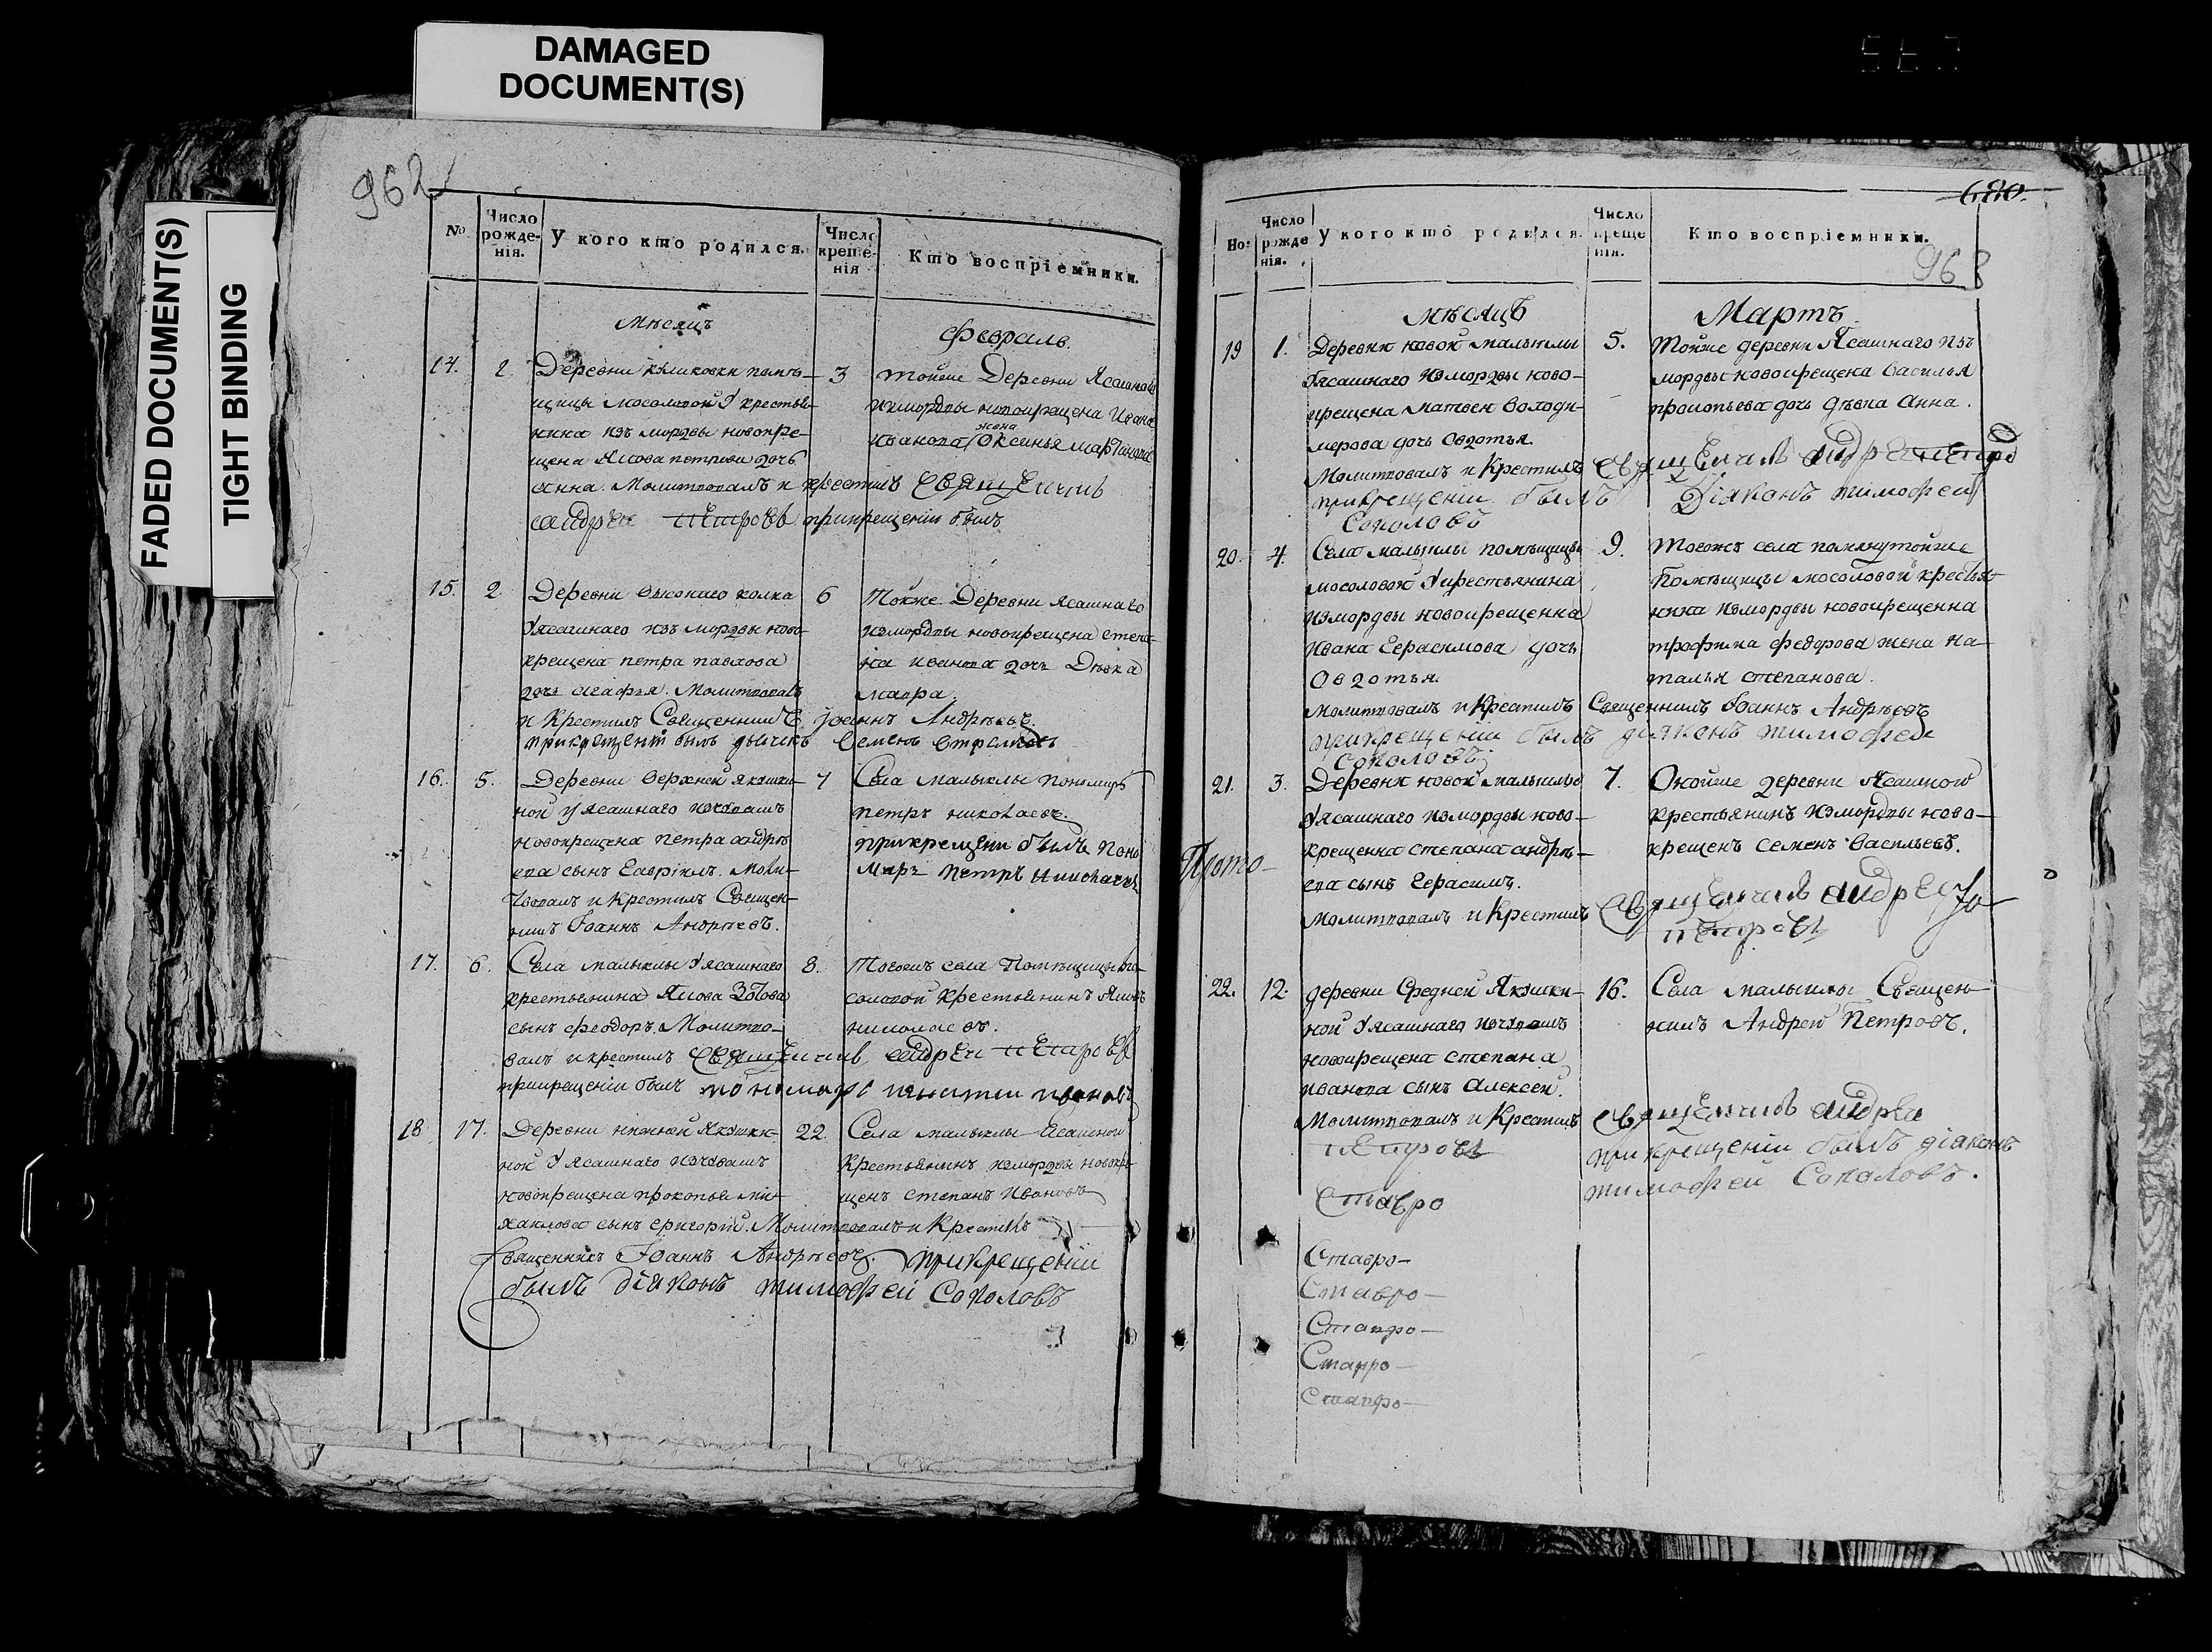 DAMAGED
DOCUMENT(S)
FADED DOCUMENT(S)
TIGHT BINDING
962
№
Число рожде-нія.
У кого кто родился.
Число креще-нія
Кто воспріемники.
Мѣсяцъ
Февраль.
14.
2.
Деревни куликовки помѣ-
щицы мосоловой У крестья-
нина изъ мордвы новокре-
щена Якова петрова дочь
анна. Молитвовалъ и крестилъ священникъ
андреи петровъ прикрещеніи былъ
3
тойже Деревни Ясашнаго
измордвы новокрещена Ивана
иванова жена Оксинья мартинова
15.
2
Деревни высокаго колка
Уясашнаго изъ мордвы ново-
крещена петра павлова
дочь агафья. Молитвовалъ
и Крестилъ Священникъ Іоаннъ Андрѣевъ.
прикрещеніи былъ дьячекъ Семенъ
6
Тойже Деревни ясашнаго
измордвы новокрещена степа-
на иванова дочь Дѣвка
мавра.
16.
5.
Деревни Верхней якушки-
ной уясашнаго изчувашъ
новокрещена петра андрѣ-
ева сынъ Гаврiилъ. Моли-
твовалъ и Крестилъ Священ-
никъ Іоаннъ Андрѣевъ.
7
Села Малыклы пономаръ
петръ николаевъ.
прикрещени былъ поно
маръ петръ николаевъ
17.
6.
Села малыклы Уясашнаго
крестьянина Якова
сынъ феодоръ. Молитво-
валъ и крестилъ священникъ андреи петровъ
прикрещеніи былъ пономарь никити ивановъ
8.
Тогожъ села Помѣщицы мо-
соловой крестьянинъ Яковъ
николаевъ.
18
17.
Деревни нижней Якушки-
ной Уясашнаго изчувашъ
новокрещена прокопья ми-
хаилова сынъ григорій. Молитвовалъ и Крестилъ
Священникъ Іоаннъ Андрѣевъ. прикрещеніи
былъ діяконъ тимофей Соколовъ
22.
Села малыклы Ясашной
Крестьянинъ измордвы новокре-
щенъ степанъ Ивановъ
680.
968
Но:
Число рожде нія.
У кого кто родился.
Число креще нія.
Кто воспріемники.
мѣсяцъ
Мартъ.
19
1.
Деревни новой малыклы
Уясашнаго измордвы ново-
крещена матвея володи-
мерова дочь Овдотья.
Молитвовалъ и Крестилъ священникъ андреи петро
прикрещеніи былъ Діяконъ тимофей
Соколовъ
5.
Тойже деревни Ясашнаго изъ
мордвы новокрещена василья
прокопьева дочь дѣвка анна.
20.
4.
Села малыклы помѣщицы
мосоловой Укрестьянина
измордвы новокрещенна
ивана Герасимова дочь
Овдотья.
молитвовалъ и Крестилъ Священникъ Іоаннъ Андрѣевъ
прикрещеніи былъ діяконъ тимофей
Соколовъ.
9.
Тогожъ села помянутойже
Помѣщицы мосоловой крестья-
нина измордвы новокрещенна
трофима федорова жена на-
талья степанова.
21.
3.
Деревни новой малыклы
Уясашнаго измордвы ново-
крещенна степана андрѣ-
ева сынъ Герасимъ.
Молитвовалъ и Крестилъ священникъ андрей
петровъ
7.
Оной же деревни Ясашной
крестьянинъ измордвы ново-
крещенъ семенъ васильевъ.
Прото-
22.
12.
деревни Средней Якушки-
ной Уясашнаго изчувашъ
новокрещена степана
иванова сынъ алексей.
Молитвовалъ и Крестилъ священникъ андреи
петровъ
прикрещеніи былъ діяконъ
тимофеи Соколовъ.
16.
Села малыклы Священ-
никъ Андрей Петровъ.
Ставро
Ставро-
Ставро-
Ставро-
Ставро-
Ставро-